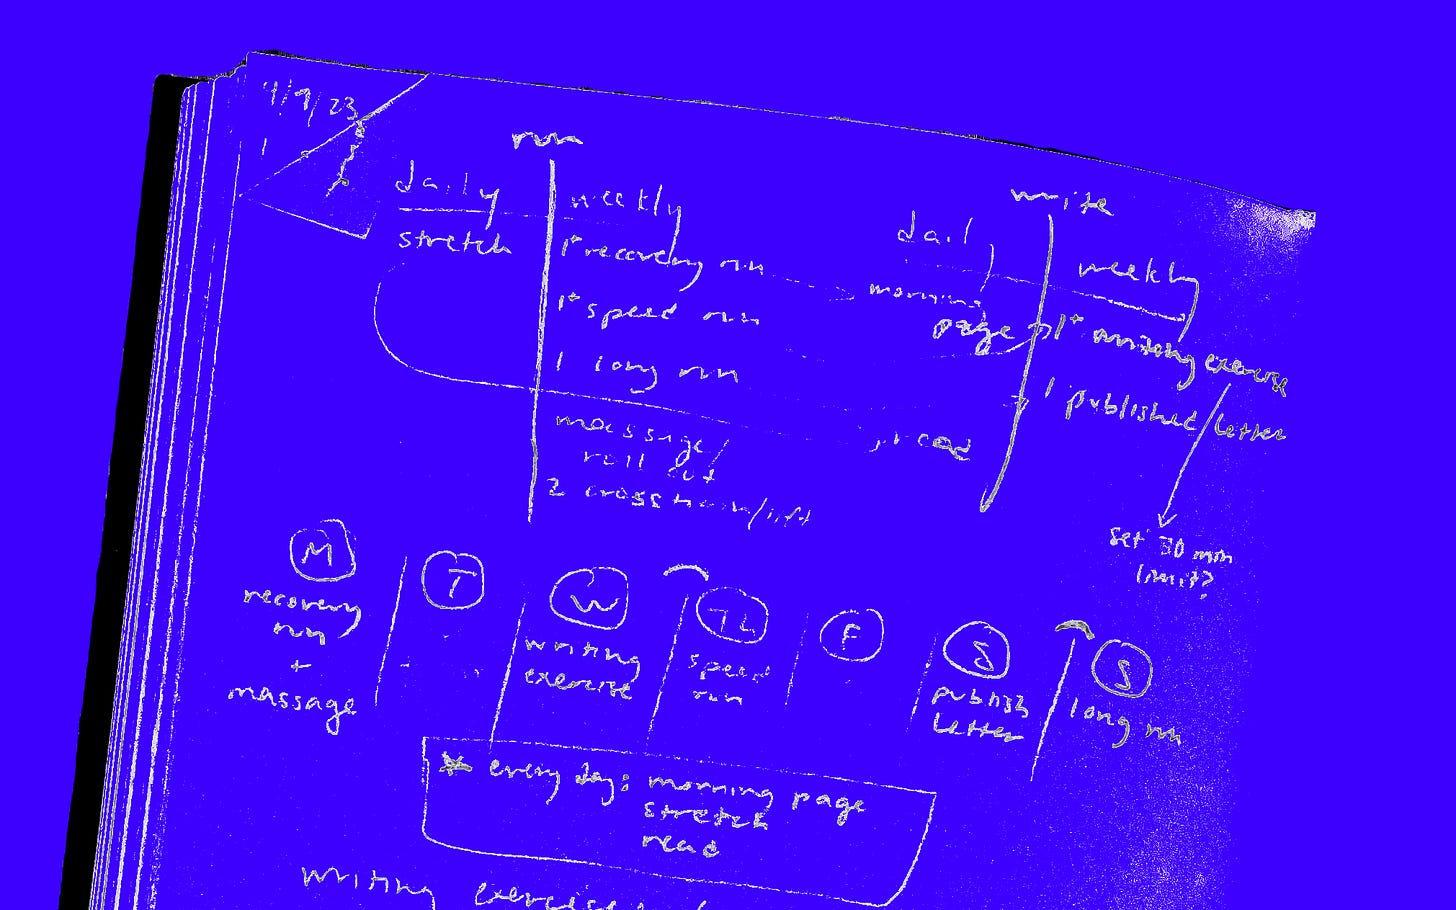 4/9/23
run
daily
weekly
stretch
1+ recovery run
1+ speed run
1 long run
massage/
roll out
2 cross train/lift
write
daily
weekly
morning
page
1+ writing exercise
1 published/letter
read
set 30 min
limit?
M
recovery
run
+
massage
T
W
writing
exercise
Th
speed
run
F
S
publish
letter
S
long run
* every day: morning page
stretch
read
writing exercise